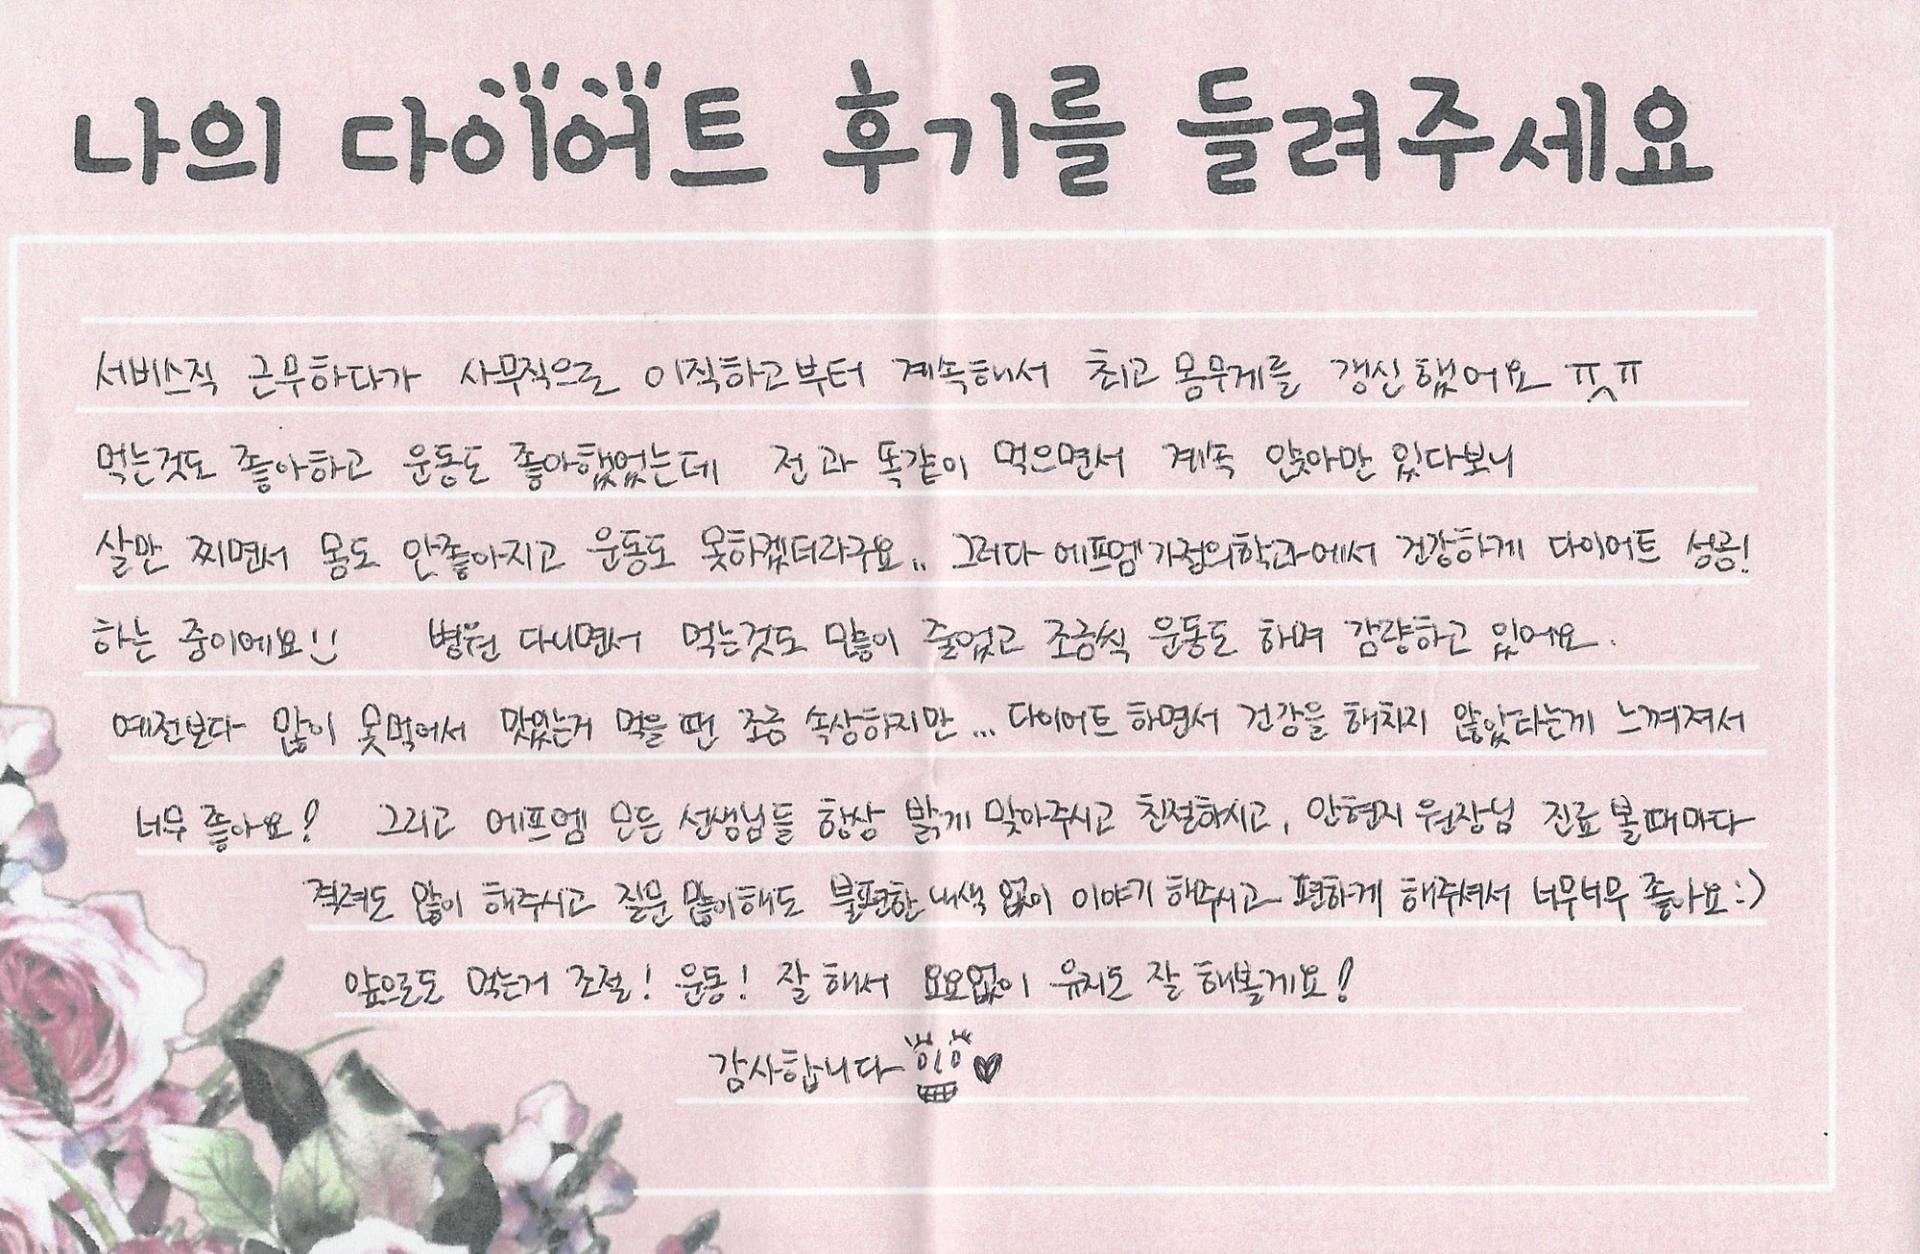 나의 다이어트 후기를 들려주세요
서비스직 근무하다가 사무직으로 이직하고부터 계속해서 최고 몸무게를 갱신했어요 ㅠㅅㅠ
먹는것도 좋아하고 운동도 좋아했었는데 전과 똑같이 먹으면서 계속 앉아만 있다보니
살만 찌면서 몸도 안좋아지고 운동도 못하겠더라구요.. 그러다 에프엠가정의학과에서 건강하게 다이어트 성공!
하는 중이에요!! 병원 다니면서 먹는것도 많이 줄였고 조금씩 운동도 하며 감량하고 있어요.
예전보다 많이 못먹어서 맛있는거 먹을 땐 조금 속상하지만... 다이어트 하면서 건강을 해치지 않았다는게 느껴져서
너무 좋아요! 그리고 에프엠 모든 선생님들 항상 밝게 맞아주시고 친절하시고, 안현지 원장님 진료 볼때마다
격려도 많이 해주시고 질문 많이해도 불편한 내색 없이 이야기 해주시고 편하게 해주셔서 너무너무 좋아요:)
앞으로도 먹는거 조절! 운동! 잘 해서 요요없이 유지도 잘 해볼게요!
감사합니다 ♥